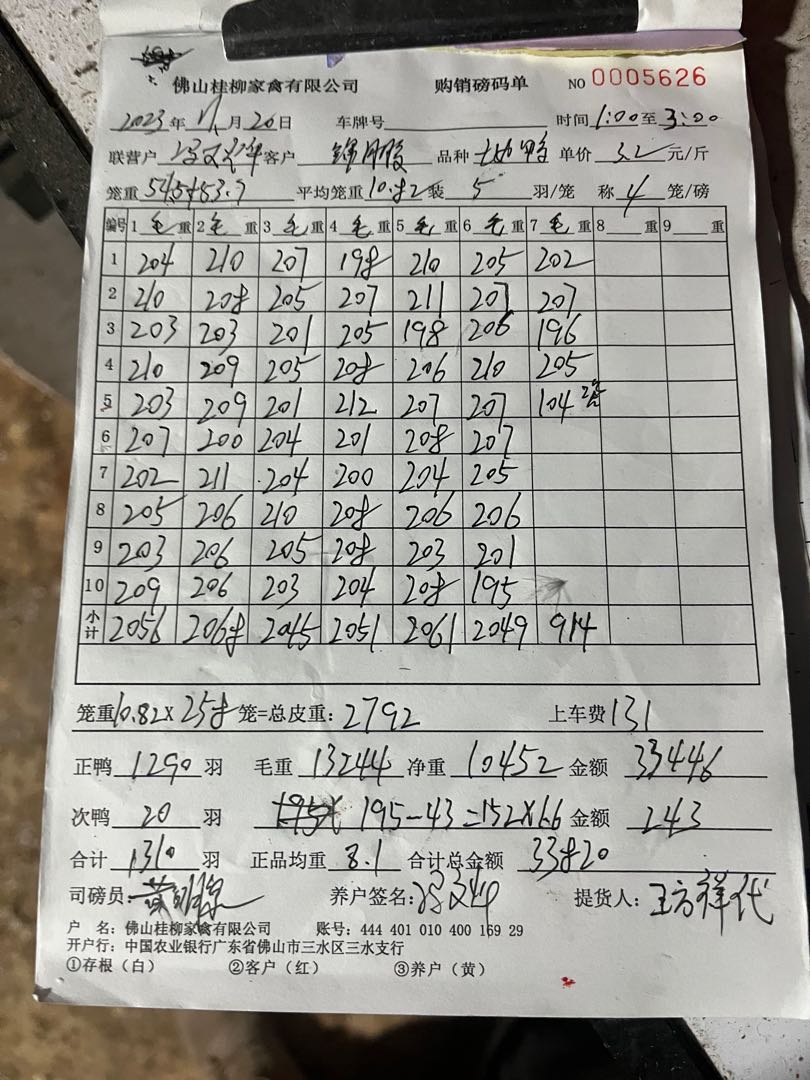 佛山桂柳家禽有限公司 购销磅码单 NO 0005626
2023年11月20日 车牌号 时间1:00至3:00
联营户 客户 品种 单价 3.2 元/斤
笼重 54.5+53.7 平均笼重 10.82 装 5 羽/笼 称 4 笼/磅
编号 1 毛 重 2 毛 重 3 毛 重 4 毛 重 5 毛 重 6 毛 重 7 毛 重 8 重 9 重
1 204 210 207 198 210 205 202
2 210 208 205 207 211 207 207
3 203 203 201 205 198 206 196
4 210 209 205 208 206 210 205
5 203 209 201 212 207 207 104 2笼
6 207 200 204 201 208 207
7 202 211 204 200 204 205
8 205 206 210 208 206 206
9 203 206 205 208 203 201
10 209 206 203 204 208 195
小计 2056 2068 2045 2051 2061 2049 914
笼重 10.82 X 258 笼=总皮重: 2792 上车费 131
正鸭 1290 羽 毛重 13244 净重 10452 金额 33446
次鸭 20 羽 195-43=152X1.6 金额 243
合计 1310 羽 正品均重 8.1 合计总金额 33820
司磅员: 养户签名: 提货人: 王方祥代
户 名: 佛山桂柳家禽有限公司 账号: 444 401 010 400 169 29
开户行: 中国农业银行广东省佛山市三水区三水支行
①存根(白) ②客户(红) ③养户(黄)